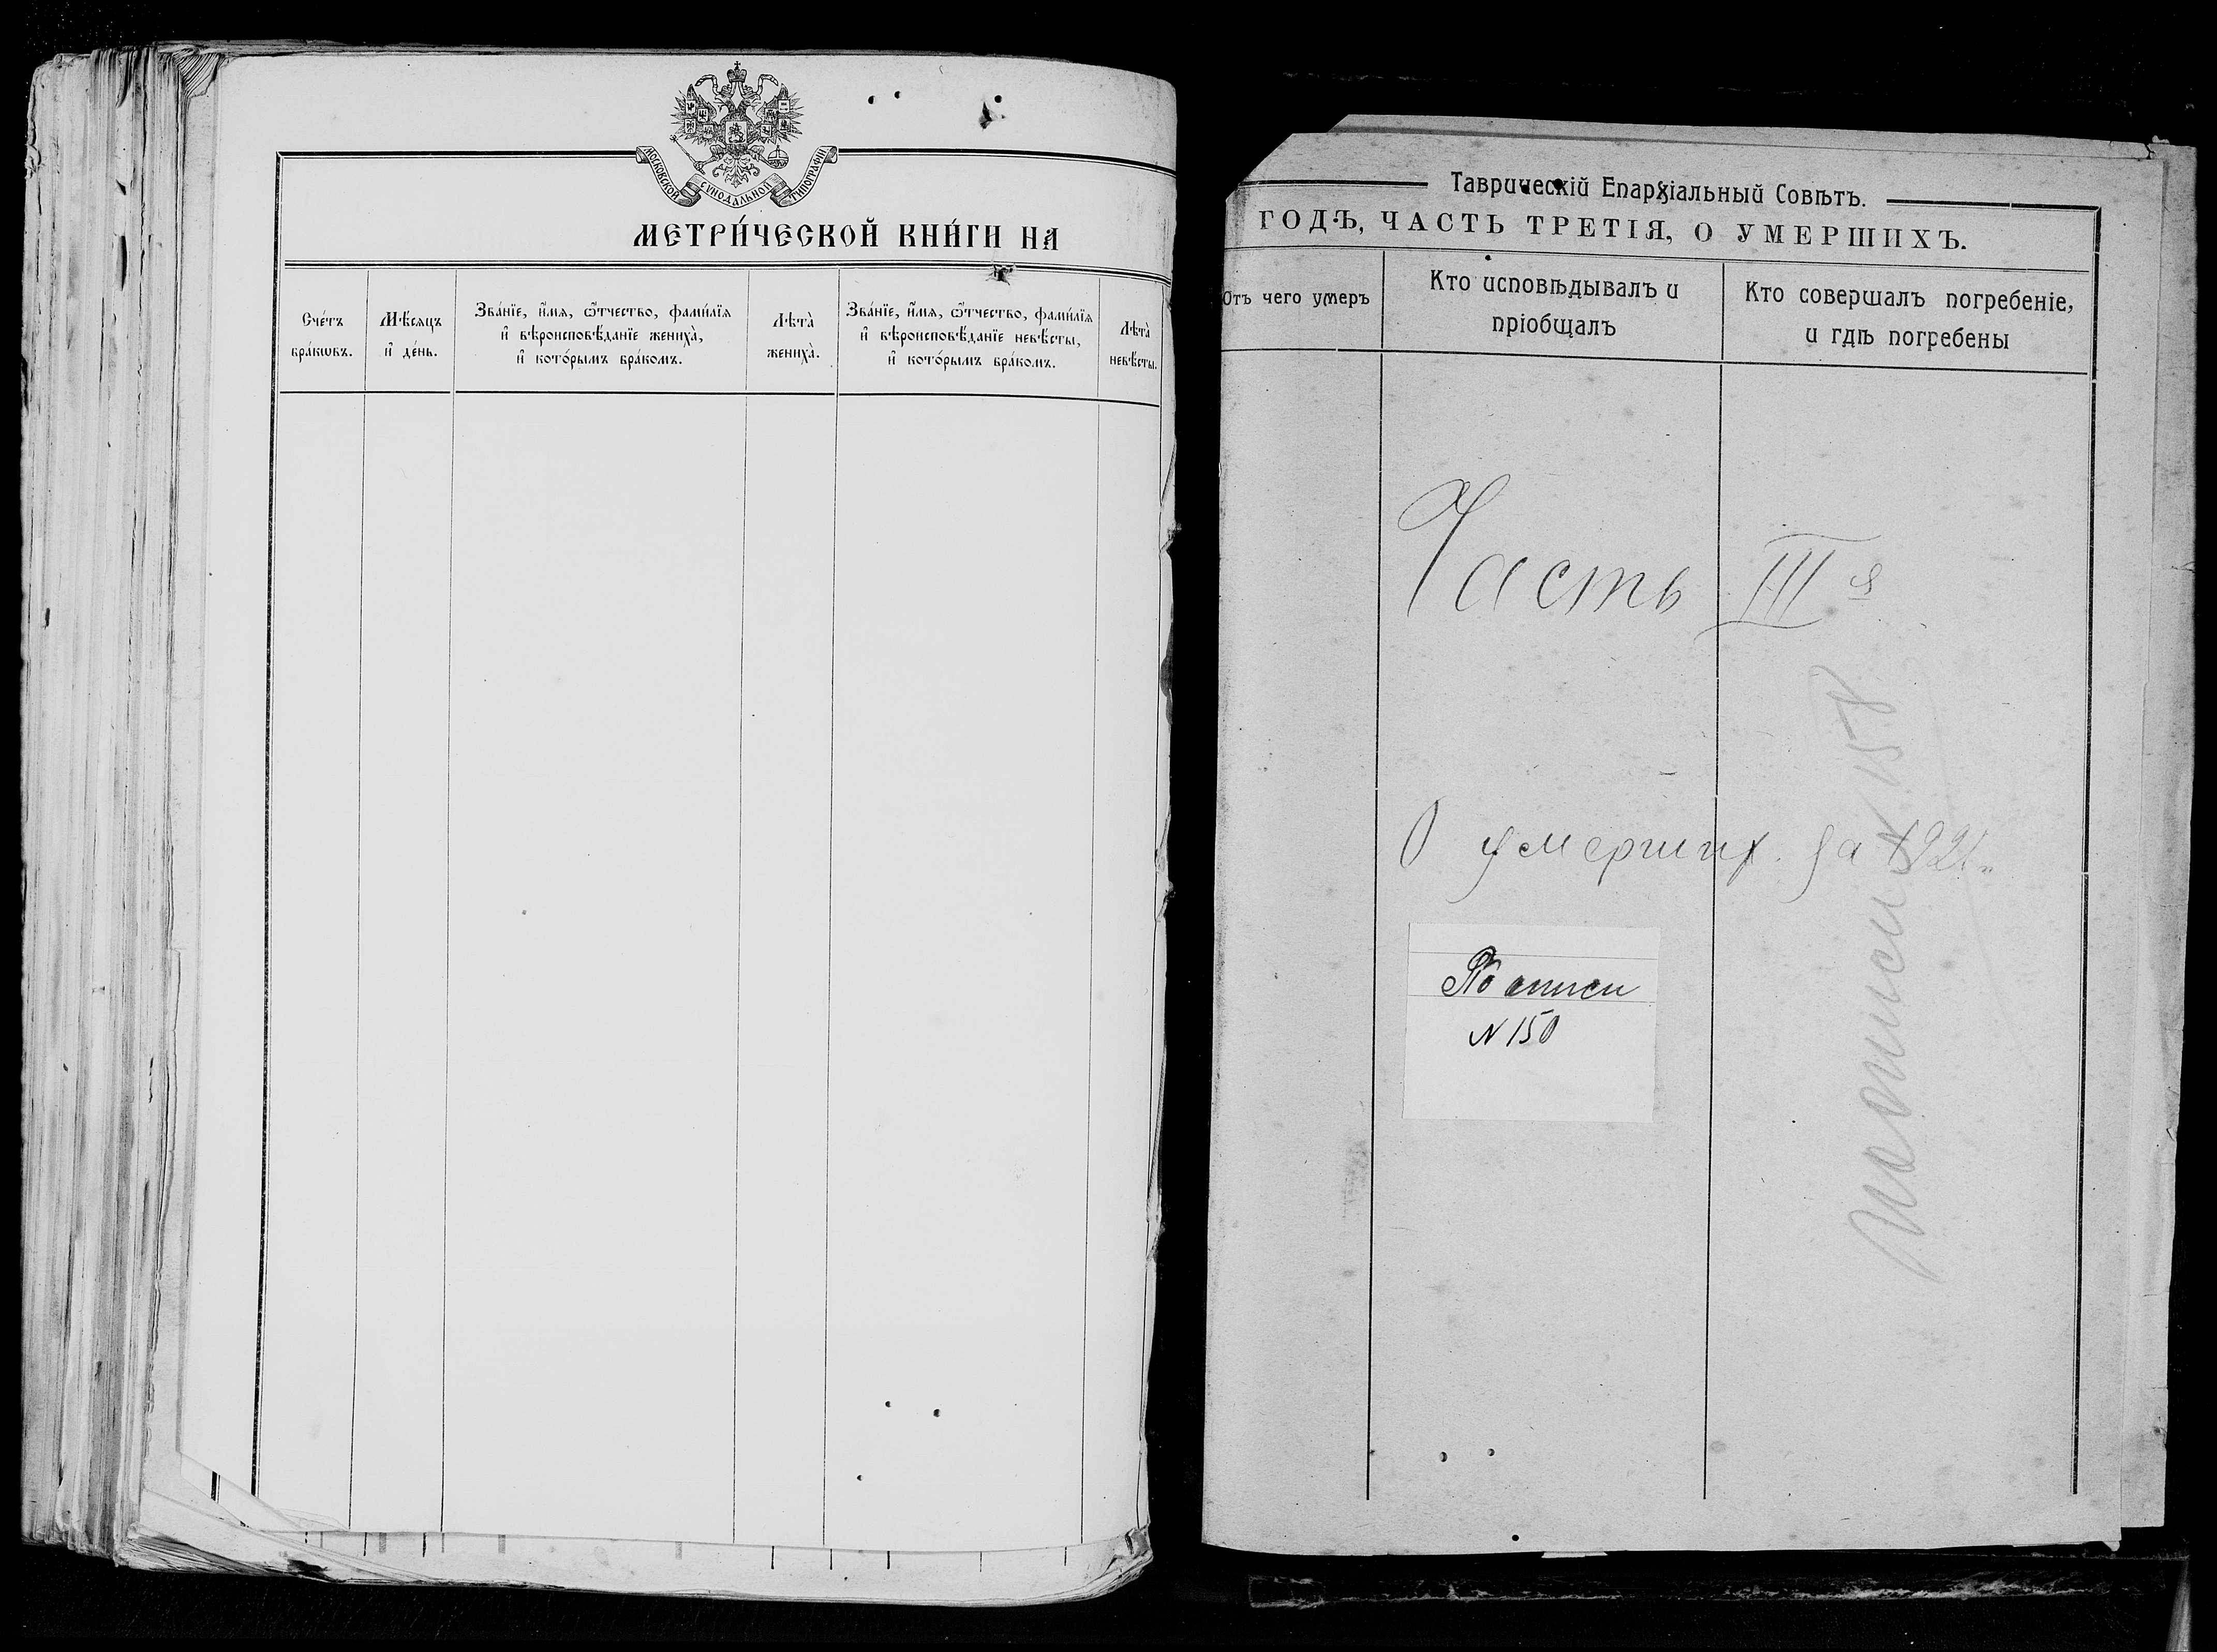 МОСКОВСКОЙ СѴНОДАЛЬНОЙ ТИПОГРАФІИ
МЕТРИ́ЧЕСКОЙ КНИ́ГИ НА
Сче́тъ
бра́кѡвъ.
Мѣ́сяцъ
и҆ де́нь.
Зва́нїе, и҆́мѧ, ѿтчество, фами́лїѧ
и҆ вѣроисповѣ́данїе жениха̀,
и҆ кото́рымъ бра́комъ.
Лѣта̀
жениха̀.
Зва́нїе, и҆́мѧ, ѿтчество, фами́лїѧ
и҆ вѣроисповѣ́данїе невѣ́сты,
и҆ кото́рымъ бра́комъ.
Лѣта̀
невѣ́сты.
Таврическій Епархіальный Совѣтъ.
ГОДЪ, ЧАСТЬ ТРЕТІЯ, О УМЕРШИХЪ.
Отъ чего умеръ
Кто исповѣдывалъ и
пріобщалъ
Кто совершалъ погребеніе,
и гдѣ погребены
Часть III я
О умерших. за 1921
По описи
N 150
По описи N 158